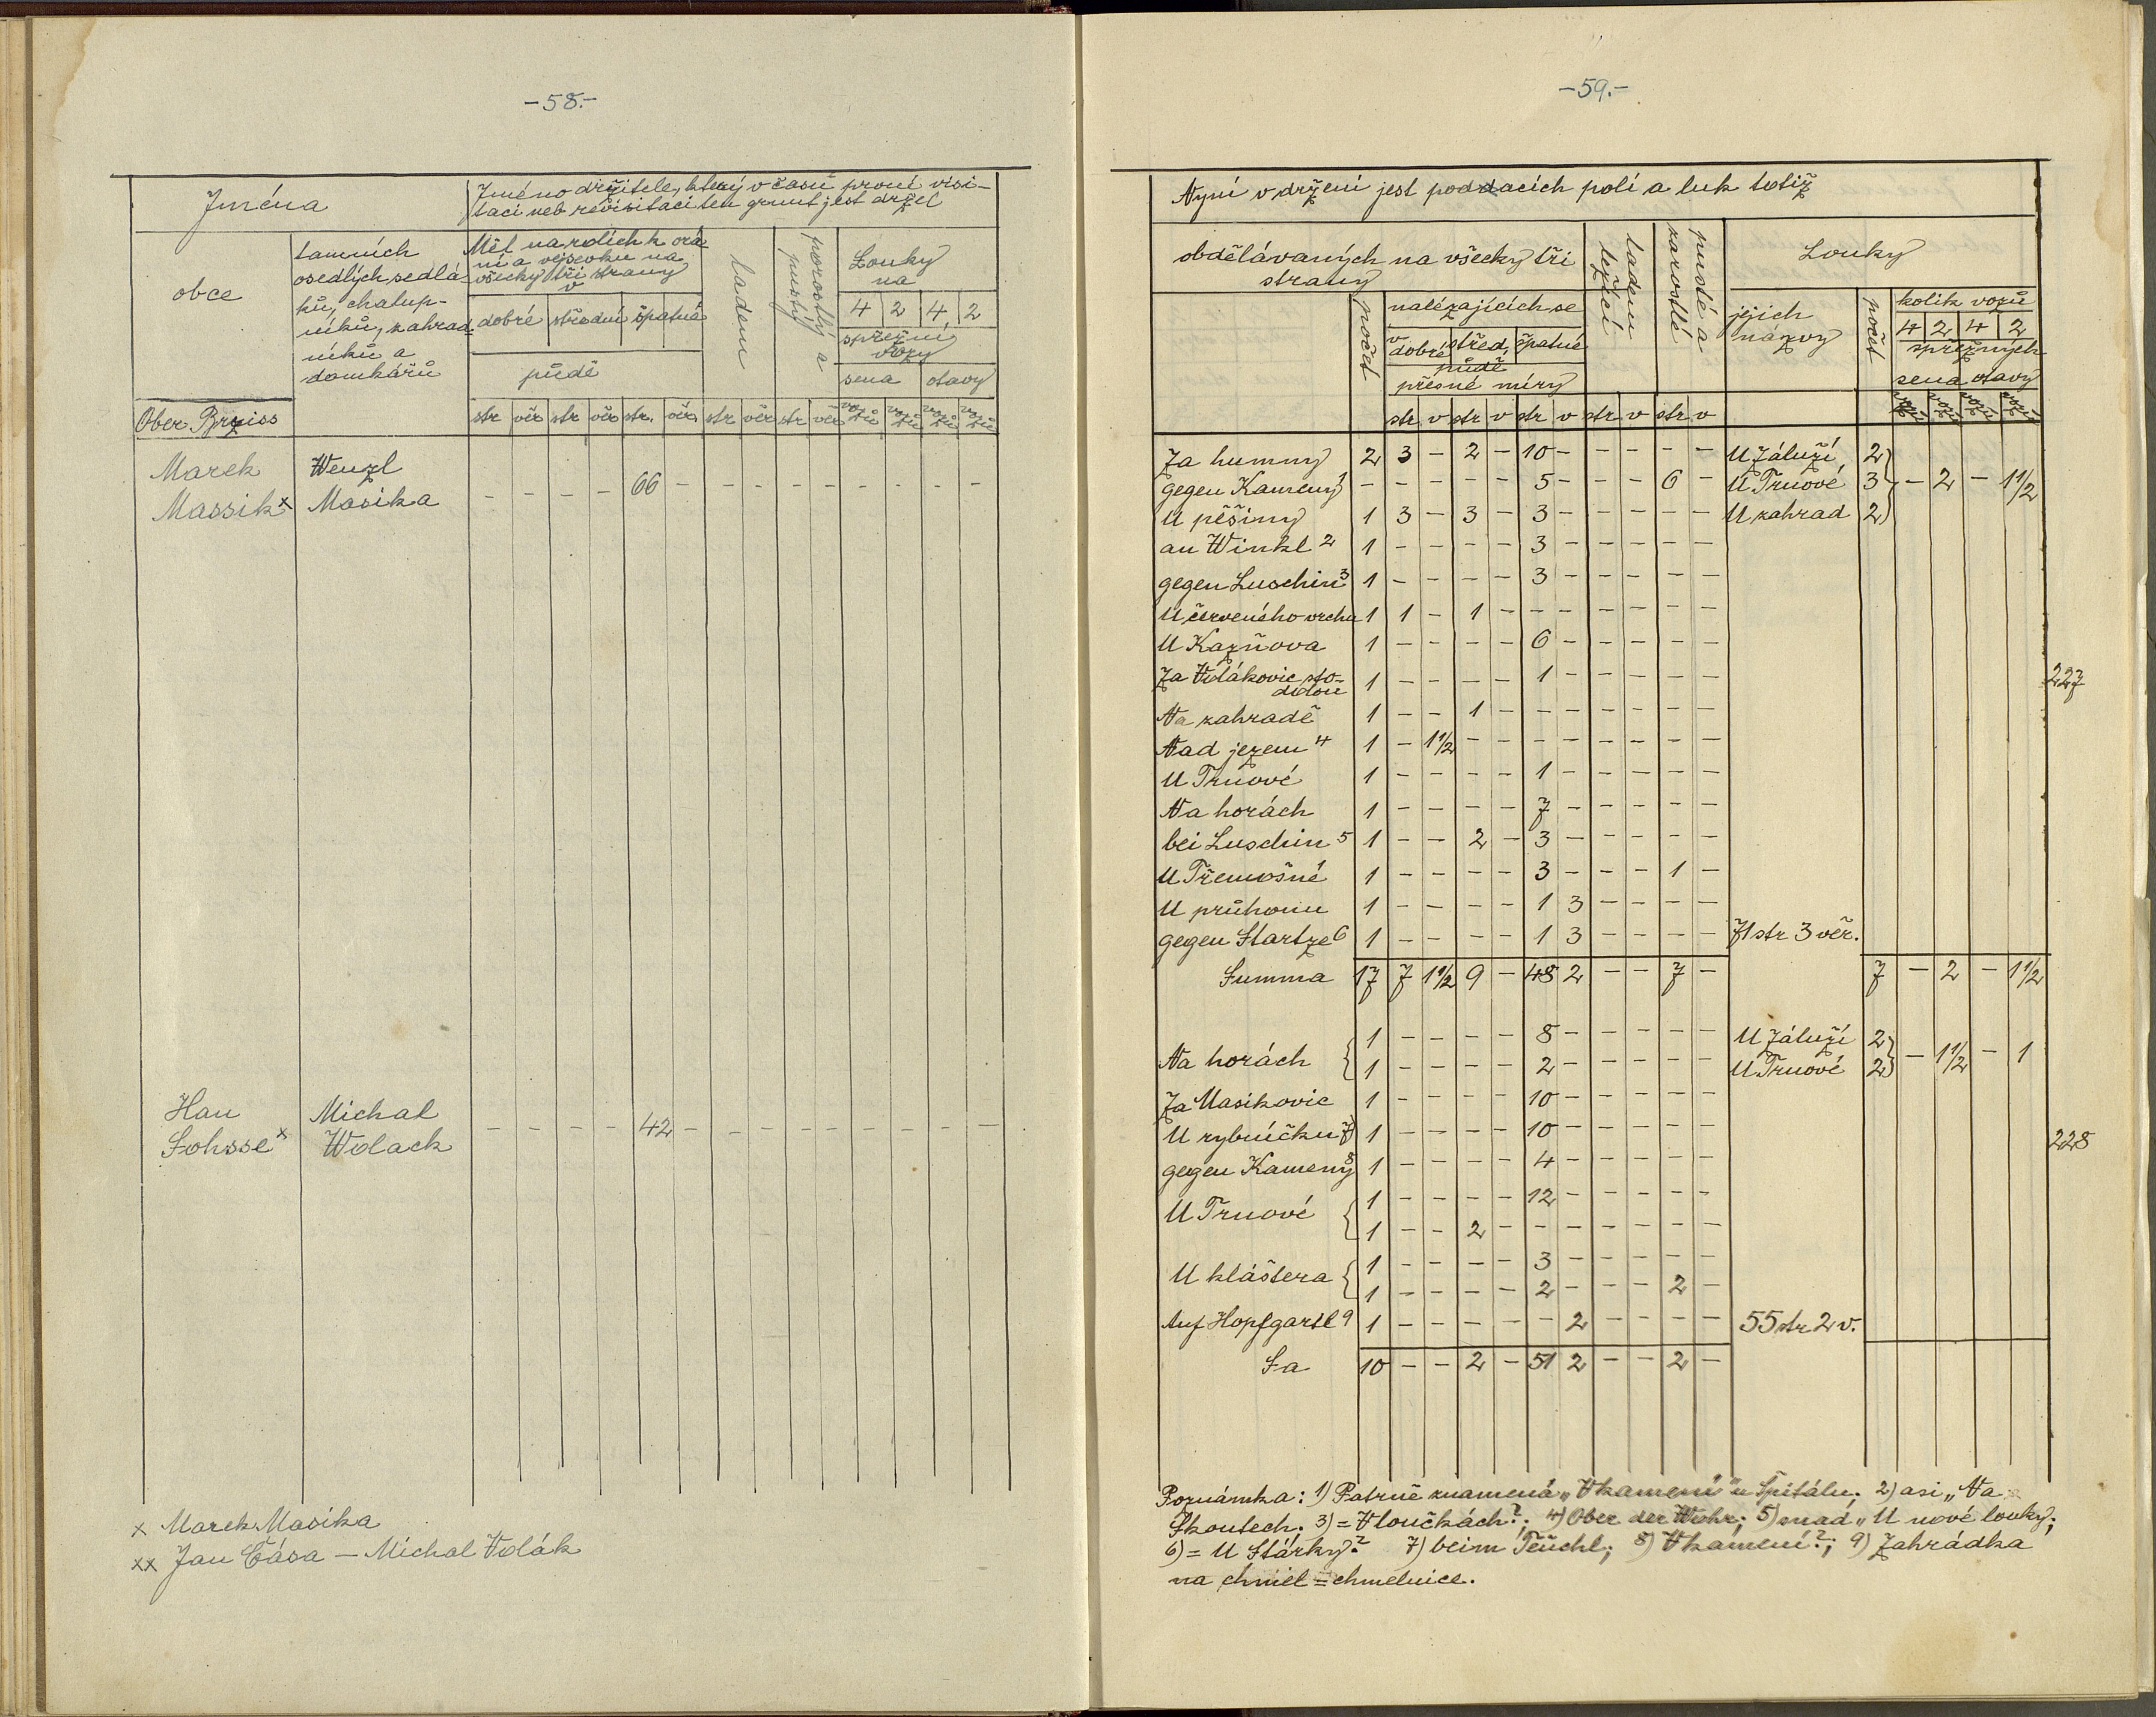 -58.-
Jména
Jméno držitele, který v času první visi-
taci neb revisitaci ten grunt jest držel
obce
tamních
osedlých sedlá-
ků, chalup-
níků, zahrad-
níků a
domkářů
Měl na rolích k orá-
ní a vejsevku na
všecky tři strany
v
dobré střední špatné
půdě
ladem
porostlý a
pustý
Louky
na
4 2 4 2
spřežní
vozy
sena otavy
Ober Brziss
str věr str věr str. věr. str věr str věr vozů vozů vozů vozů
Marek Wenzl
Massik x Masika - - - - 66 - - - - - - - - -
Han Michal
Sohsse x Wolack - - - - 42 - - - - - - - - -
x Marek Masika
xx Jan Čása - Michal Volák
-59.-
Nyní v držení jest poddacích polí a luk totiž
obdělávaných na všecky tři
strany
ladem
ležící
pusté a
zarostlé
Louky
počet
nalézajících se
v dobré střed. špatné
půdě
přesné míry
jejich
názvy
počet
kolik vozů
4 2 4 2
spřežných
sena otavy
str v str v str v str v str v vozů vozů vozů vozů
Za humny 2 3 - 2 - 10 - - - - - U Záluží 2
gegen Kamený 1 - - - - - 5 - - - 6 - U Trnové 3 - 2 - 1 1/2
U pěšiny 1 3 - 3 - 3 - - - - - U zahrad 2
an Winkl 2 1 - - - - 3 - - - - -
gegen Luschin 3 1 - - - - 3 - - - - -
U červeného vrchu 1 1 - 1 - - - - - - -
U Kazňova 1 - - - - 6 - - - - -
Za Volákovic sto-
dolou 1 - - - - 1 - - - - - 227
Na zahradě 1 - - 1 - - - - - - -
Nad jezem 4 1 - 1 1/2 - - - - - - - -
U Trnové 1 - - - - 1 - - - - -
Na horách 1 - - - - 7 - - - - -
bei Luschin 5 1 - - 2 - 3 - - - - -
U Třemošné 1 - - - - 3 - - - 1 -
U průhonu 1 - - - - 1 3 - - - -
gegen Startze 6 1 - - - - 1 3 - - - - 71 str 3 věr.
Summa 17 7 1 1/2 9 - 48 2 - - 7 - 7 - 2 - 1 1/2
1 - - - - 8 - - - - - U Záluží 2
Na horách 1 - - - - 2 - - - - - U Trnové 2 - 1 1/2 - 1
Za Masikovic 1 - - - - 10 - - - - -
U rybníčku 7) 1 - - - - 10 - - - - - 228
gegen Kamený 8 1 - - - - 4 - - - - -
U Trnové 1 - - - - 12 - - - - -
1 - - 2 - - - - - - -
U kláštera 1 - - - - 3 - - - - -
1 - - - - 2 - - - 2 -
Auf Hopfgartl 9 1 - - - - - 2 - - - - 55 str 2 v.
Sa 10 - - 2 - 51 2 - - 2 -
Poznámka: 1) Patrně znamená „V kamení" u Špitálu; 2) asi „Na
Skoutech; 3) = V loučkách?; 4) Ober der Wehr; 5) snad „U nové louky;
6) = U Stárky? 7) beim Teuchl; 8) V kamení?; 9) Zahrádka
na chmel = chmelnice.